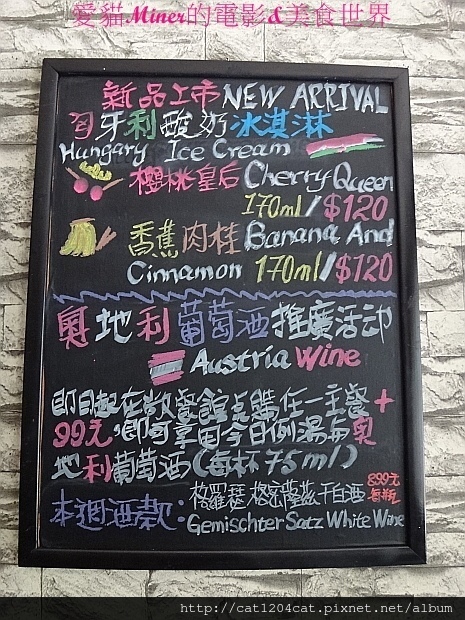 愛貓Miner的電影&美食世界
新品上市 NEW ARRIVAL
匈牙利酸奶冰淇淋
Hungary Ice Cream
櫻桃皇后 Cherry Queen
170ml/$120
香蕉肉桂 Banana And
Cinnamon 170ml/$120
奧地利葡萄酒推廣活动
Austria Wine
即日起在敝餐館点購任一主餐+
99元,即可享用今日例湯与奧
地利葡萄酒(每杯75ml)
本週酒款:格羅瑟 格密薩茲干白酒 899元
每瓶
Gemischter Satz White Wine
http://cat1204cat.pixnet.net/album